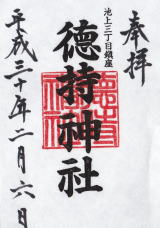 奉拝
池上三丁目鎮座
徳持神社
平成三十年二月六日